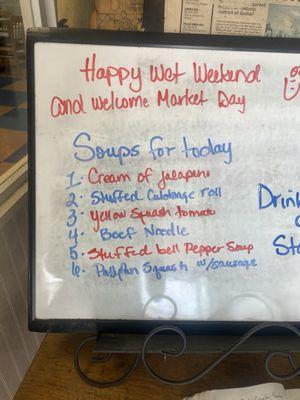 Happy Wet Weekend
and Welcome Market Day
Soups for today
1. Cream of jalapani
2. Stuffed Cabbage roll
3. Yellow Squash tomato
4. Beef Noodle
5. Stuffed bell Pepper Soup
6. Squash w/sausage
Drin